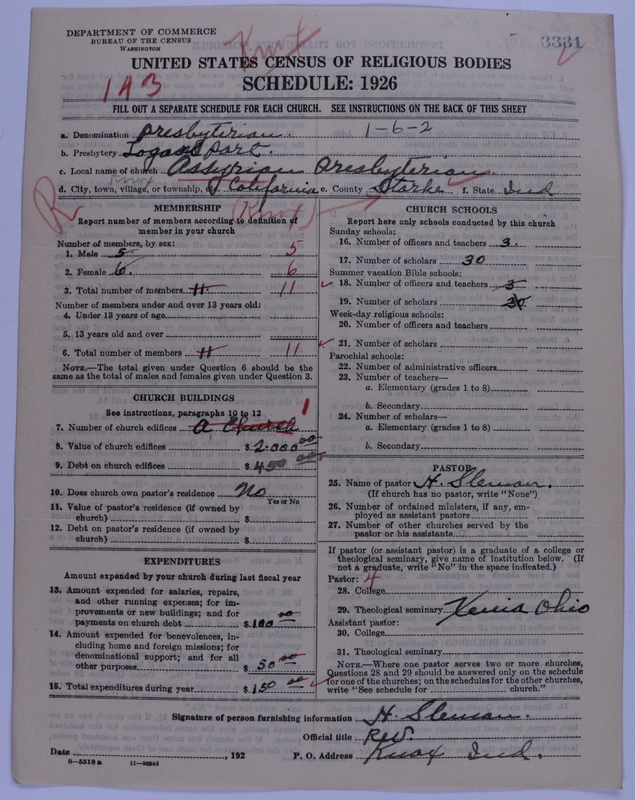 DEPARTMENT OF COMMERCE
BUREAU OF THE CENSUS
WASHINGTON
Knox
3331
UNITED STATES CENSUS OF RELIGIOUS BODIES
SCHEDULE: 1926
143
FILL OUT A SEPARATE SCHEDULE FOR EACH CHURCH. SEE INSTRUCTIONS ON THE BACK OF THIS SHEET
a. Denomination Presbyterian. 1-6-2
b. Presbytery Logansport.
c. Local name of church Assyrian Presbyterian
d. City, town, village, or township, etc. California e. County Starke f. State Ind
R
Knox
MEMBERSHIP
Report number of members according to definition of
member in your church
Number of members, by sex:
1. Male 5 5
2. Female 6. 6
3. Total number of members 11 11
Number of members under and over 13 years old:
4. Under 13 years of age
5. 13 years old and over
6. Total number of members 11 11
NOTE.—The total given under Question 6 should be the
same as the total of males and females given under Question 3.
CHURCH BUILDINGS
See instructions, paragraphs 10 to 12
7. Number of church edifices a Church 1
8. Value of church edifices $2.000 00
9. Debt on church edifices $450 00
10. Does church own pastor's residence No
Yes or No
11. Value of pastor's residence (if owned by
church) $
12. Debt on pastor's residence (if owned by
church) $
EXPENDITURES
Amount expended by your church during last fiscal year
13. Amount expended for salaries, repairs,
and other running expenses; for im-
provements or new buildings; and for
payments on church debt $100 00
14. Amount expended for benevolences, in-
cluding home and foreign missions; for
denominational support; and for all
other purposes $50 00
15. Total expenditures during year $150 00
CHURCH SCHOOLS
Report here only schools conducted by this church
Sunday schools:
16. Number of officers and teachers 3.
17. Number of scholars 30
Summer vacation Bible schools:
18. Number of officers and teachers 3
19. Number of scholars 30
Week-day religious schools:
20. Number of officers and teachers
21. Number of scholars
Parochial schools:
22. Number of administrative officers
23. Number of teachers—
a. Elementary (grades 1 to 8)
b. Secondary
24. Number of scholars—
a. Elementary (grades 1 to 8)
b. Secondary
PASTOR
25. Name of pastor H. Sleman.
(If church has no pastor, write "None")
26. Number of ordained ministers, if any, em-
ployed as assistant pastors
27. Number of other churches served by the
pastor or his assistants
If pastor (or assistant pastor) is a graduate of a college or
theological seminary, give name of institution below. (If
not a graduate, write "No" in the space indicated.)
Pastor: 4
28. College
29. Theological seminary Xenia Ohio
Assistant pastor:
30. College
31. Theological seminary
NOTE.—Where one pastor serves two or more churches,
Questions 28 and 29 should be answered only on the schedule
for one of the churches; on the schedules for the other churches,
write "See schedule for church."
Signature of person furnishing information H. Sleman.
Official title Rev.
Date , 192 P. O. Address Knox Ind.
8—5518 a